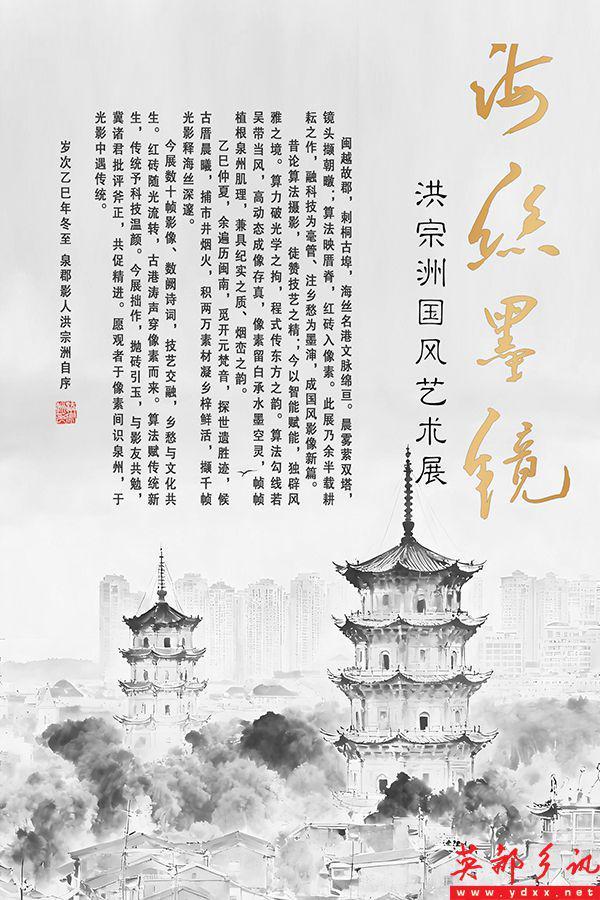 海丝墨镜
洪宗洲国风艺术展
闽越故郡，刺桐古埠，海丝名港文脉绵亘。晨雾萦双塔，
镜头撷朝暾；算法映厝脊，红砖入像素。此展乃余半载耕
耘之作，融科技为毫管、注乡愁为墨渖，成国风影像新篇。
昔论算法摄影，徒赞技艺之精；今以智能赋能，独辟风
雅之境。算力破光学之拘，程式传东方之韵。算法勾线若
吴带当风，高动态成像存真，像素留白承水墨空灵，帧帧
植根泉州肌理，兼具纪实之质、烟峦之韵。
乙巳仲夏，余遍历闽南，觅开元梵音，探世遗胜迹，候
古厝晨曦，捕市井烟火，积两万素材凝乡梓鲜活，撷千帧
光影释海丝深邃。
今展数十帧影像、数阕诗词，技艺交融，乡愁与文化共
生。红砖随光流转，古港涛声穿像素而来。算法赋传统新
生，传统予科技温颜。今展拙作，抛砖引玉，与影友共勉，
冀诸君批评斧正，共促精进。愿观者于像素间识泉州，于
光影中遇传统。
岁次乙巳年冬至 泉郡影人洪宗洲自序
英都乡讯
www.ydxx.net